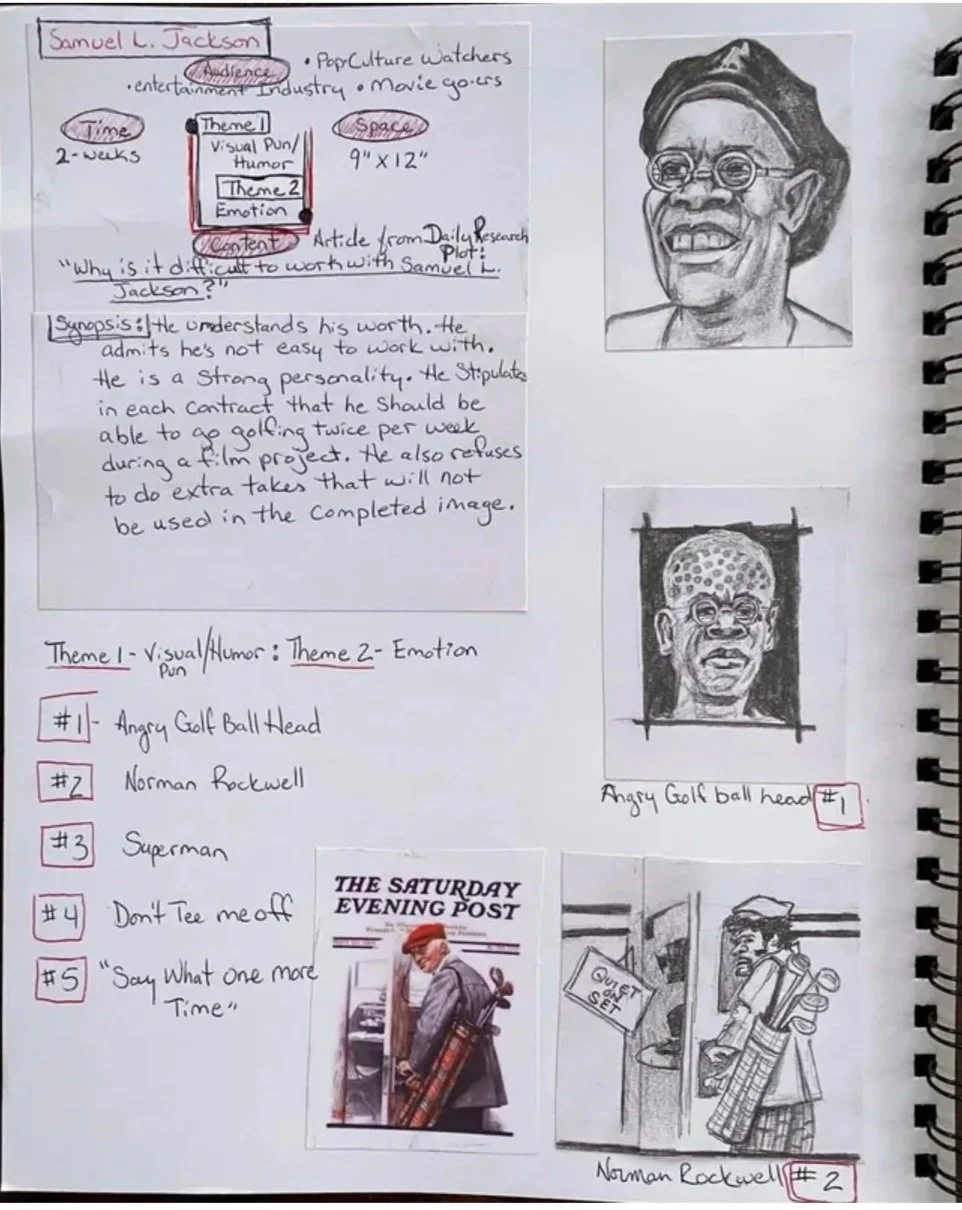 Samuel L. Jackson
Audience
• Pop Culture Watchers
• entertainment Industry • Movie goers
Time
2-weeks
Theme 1
Visual Pun/
Humor
Theme 2
Emotion
Space
9" X 12"
Content
Article from Daily Research
Plot:
"Why is it difficult to work with Samuel L.
Jackson?"
Synopsis: He understands his worth. He
admits he's not easy to work with.
He is a Strong personality. He Stipulates
in each Contract that he should be
able to go golfing twice per week
during a film project. He also refuses
to do extra takes that will not
be used in the completed image.
Theme 1 - Visual/Humor : Theme 2 - Emotion
Pun
#1 - Angry Golf Ball Head
#2 Norman Rockwell
#3 Superman
#4 Don't Tee me off
#5 "Say What one more
Time"
Angry Golf ball head #1
THE SATURDAY
EVENING POST
QUIET
ON
SET
Norman Rockwell #2